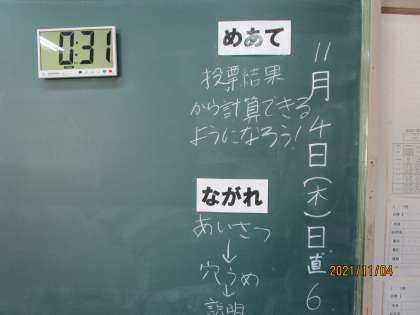 0:31
めあて
投票結果
から計算できる
ようになろう!
ながれ
あいさつ
↓
穴うめ
↓
説明
11月4日(木)日直6
2021/11/04